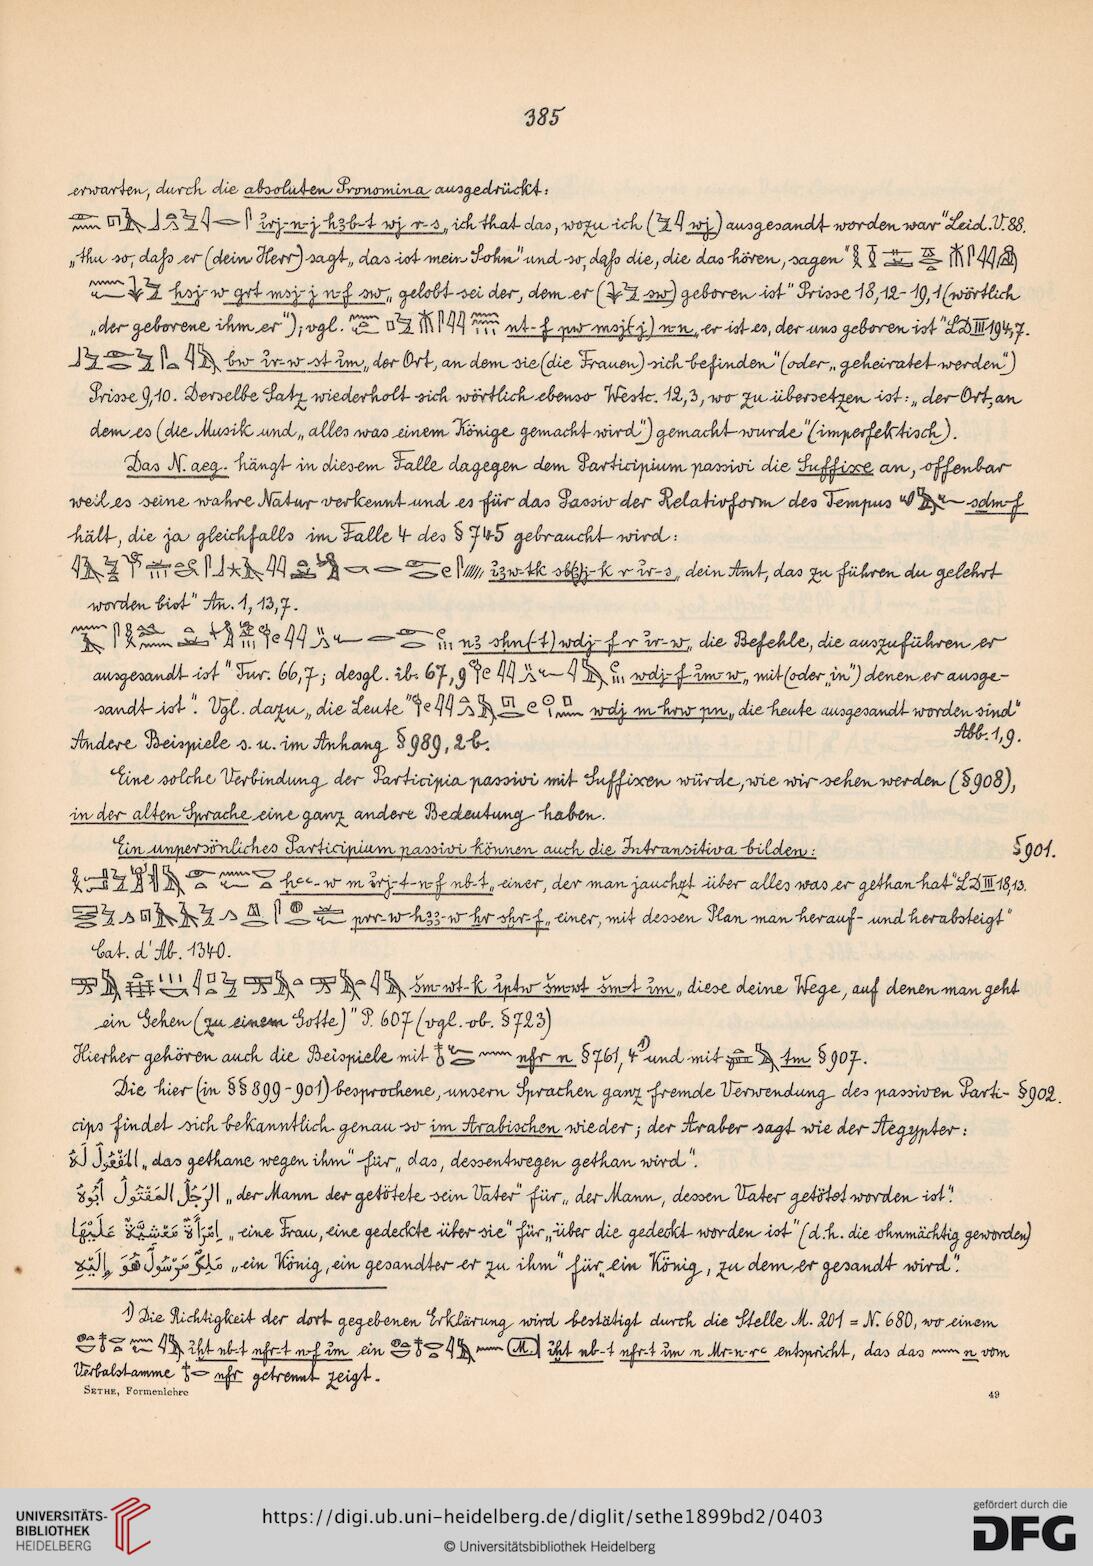 385
erwarten, durch die absoluten Pronomina ausgedrückt:
ı͗rj-n-j hꜣb-t wj r-s „ich that das, wozu ich (wj) ausgesandt worden war“ Leid. V. 88.
„thu so, daſs er (dein Herr) sagt „das ist mein Sohn“ und so, daſs die, die das hören, sagen“
ḥsj-w grt msj-j n-f sw „gelobt sei der, dem er (sw) geboren ist“ Prisse 18,12-19,1 (wörtlich
„der geborene ihm er“); vgl. nt-f pw msj(j) n-n „er ist es, der uns geboren ist“ LD III 194,7.
bw ı͗r-w st ı͗m „der Ort, an dem sie (die Frauen) sich befinden“ (oder „geheiratet werden“)
Prisse 9,10. Derselbe Satz wiederholt sich wörtlich ebenso Westc. 12,3, wo zu übersetzen ist: „der Ort, an
dem es (die Musik und „alles was einem Könige gemacht wird“) gemacht wurde“ (imperfektisch).
Das N. aeg. hängt in diesem Falle dagegen dem Participium passivi die Suffixe an, offenbar
weil es seine wahre Natur verkennt und es für das Passiv der Relativform des Tempus sḏm-f
hält, die ja gleichfalls im Falle 4 des § 745 gebraucht wird:
r ı͗r-s „dein Amt, das zu führen du gelehrt
worden bist“ An. 1, 13,7.
nꜣ sḥn(-t) wdj-f r ı͗r-w „die Befehle, die auszuführen er
ausgesandt ist“ Tur. 66,7; desgl. ib. 67,9 wdj-f ı͗m-w „mit (oder „in“) denen er ausge-
sandt ist“. Vgl. dazu „die Leute“ wdj m hrw pn „die heute ausgesandt worden sind“
Abb. 1,9.
Andere Beispiele s. u. im Anhang § 989, 2b.
Eine solche Verbindung der Participia passivi mit Suffixen würde, wie wir sehen werden (§ 908),
in der alten Sprache eine ganz andere Bedeutung haben.
Ein unpersönliches Participium passivi können auch die Intransitiva bilden: § 901.
ḥꜥꜥ-w m ı͗rj-t-n-f nb-t „einer, der man jauchzt über alles was er gethan hat“ LD III 18,13.
prr-w hꜣꜣ-w ḥr sḫr-f „einer, mit dessen Plan man herauf- und herabsteigt“
Cat. d'Ab. 1340.
šm-wt-k ı͗ptw šm-wt šm-t ı͗m „diese deine Wege, auf denen man geht
ein Gehen (zu einem Gotte)“ P. 607 (vgl. ob. § 723)
Hierher gehören auch die Beispiele mit nfr n § 761, 4 ¹) und mit tm § 907.
Die hier (in §§ 899-901) besprochene, unsern Sprachen ganz fremde Verwendung des passiven Parti- § 902.
cips findet sich bekanntlich genau so im Arabischen wieder; der Araber sagt wie der Aegypter:
المَفْعُولُ لَهُ „das gethane wegen ihm“ für „das, dessentwegen gethan wird“.
الرَّجُلُ المَقْتُولُ أَبُوهُ „der Mann der getötete sein Vater“ für „der Mann, dessen Vater getötet worden ist“.
اِمْرَأَةٌ مَغْشِيَّةٌ عَلَيْهَا „eine Frau, eine gedeckte über sie“ für „über die gedeckt worden ist“ (d.h. die ohnmächtig geworden)
مَلِكٌ مَرْسُولٌ هُوَ إِلَيْهِ „ein König, ein gesandter er zu ihm“ für „ein König, zu dem er gesandt wird“.
1) Die Richtigkeit der dort gegebenen Erklärung wird bestätigt durch die Stelle M. 201 = N. 680, wo einem
ı͗ḫt nb-t nfr-t n-f ı͗m ein ı͗ḫt nb-t nfr-t ı͗m n Mr-n-rꜥ entspricht, das das n vom
Verbalstamme nfr getrennt zeigt.
SETHE, Formenlehre
49
UNIVERSITÄTS-
BIBLIOTHEK
HEIDELBERG
https://digi.ub.uni-heidelberg.de/diglit/sethe1899bd2/0403
© Universitätsbibliothek Heidelberg
gefördert durch die
DFG